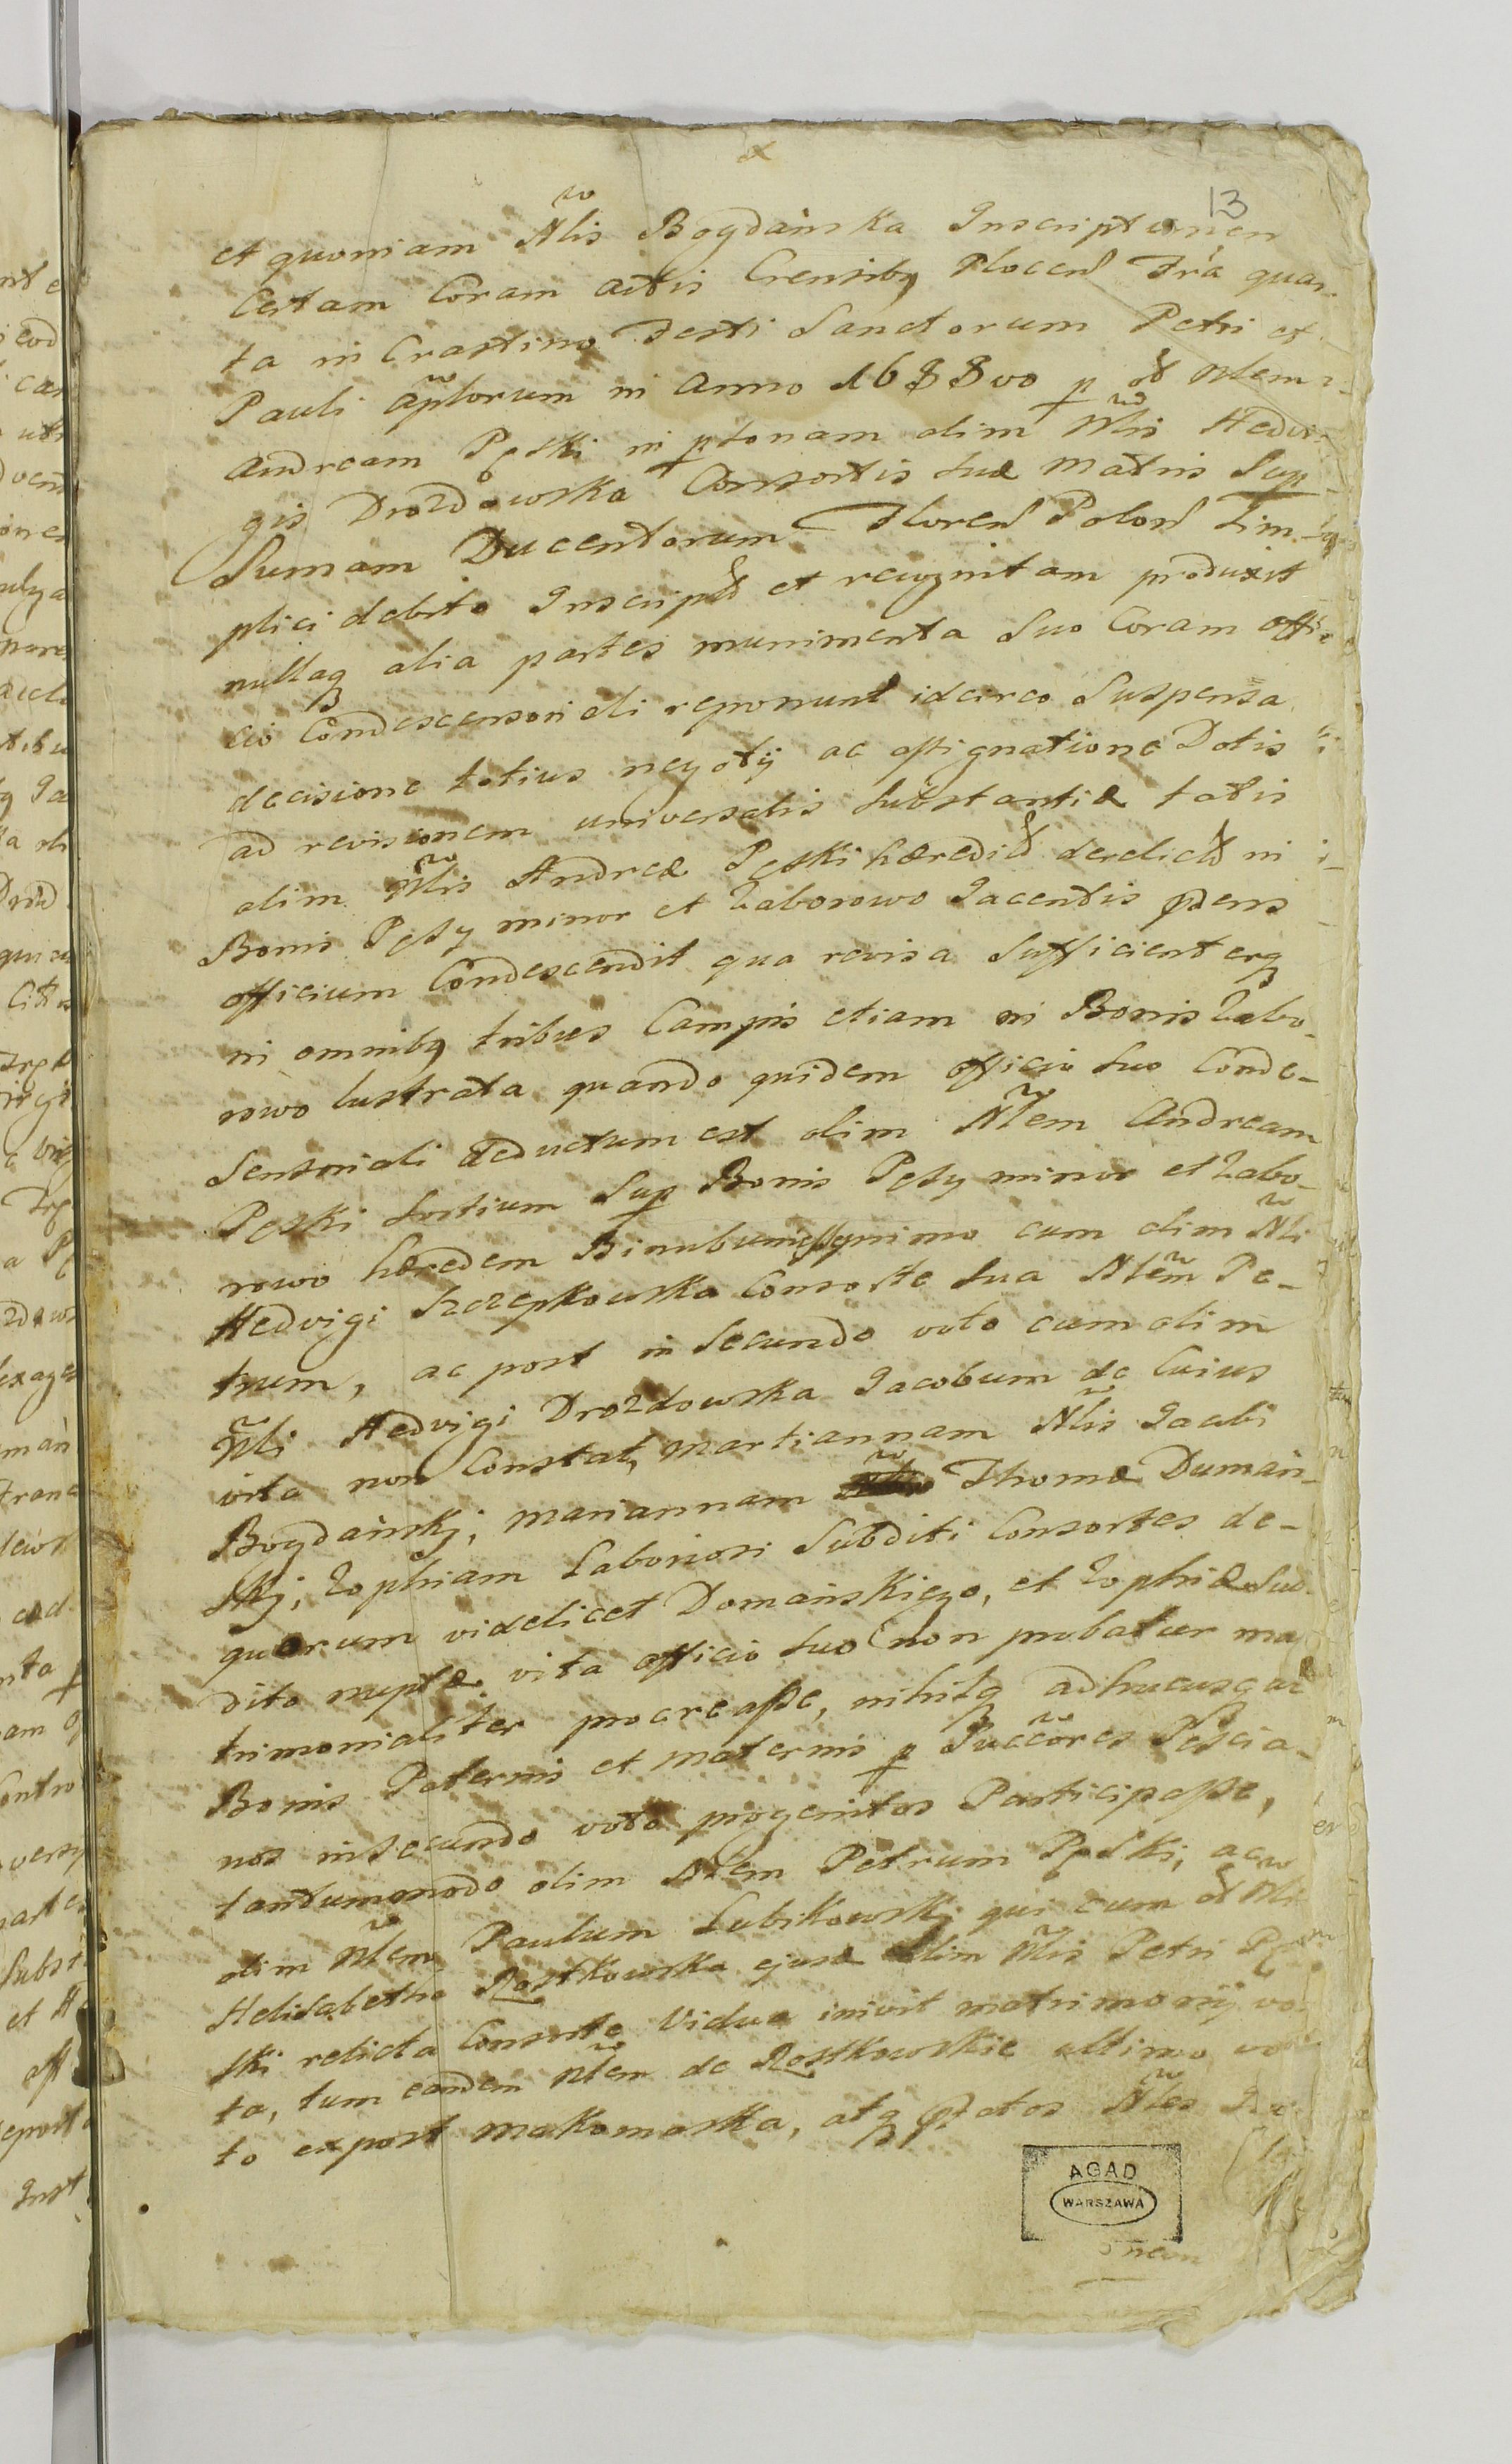 13
et quoniam Nlis Bogdańska Inscriptionem
Certam Coram actis Crensibq Plocen Fria quar-
ta in Crastino Festi Sanctorum Petri et
Pauli Aplorum in Anno 1688vo p od Nlem
Andream Pęski in psonam olim Nlis Hedvi-
gis Drozdowska Consortis suæ Matris Sup
Sumam Ducentorum Floren Polon Sim-
plici debito Inscript et recognitam produxit
nullaq alia partes munimenta Suo Coram offi-
cio Condescensoriali reponunt idcirco Suspensa
decisione totius negotij ac assignatione Dotis
ad revisionem universalis substantiæ totis
olim Nlis Andreæ Pęski hæredit derelict in
Bonis Pęsy minor et Zaborowo Jacentis pdens
officium Condescendit qua revisa Sufficienterq
in omnibq tribus Campis etiam in Bonis Zabo-
rowo lustrata quando quidem officio suo Conde-
sensoriali deductum est olim Nlem Andream
Pęski Sortium Sup Bonis Pęsy minor et Zabo-
rowo hæredem Binubum primo cum olim Nli
Hedvigi Szczepkowska Consorte sua Nlem Pe-
trum, ac post in Secundo voto cum olim
Nli Hedvigi Drozdowska Jacobum de Cuius
vita non Constat, Martiannam Nlis Jacobi
Bogdański, Mariannam Thomæ Dumań-
skj, Zophiam Laboriosi Subditi Consortes de-
quorum videlicet Domańskiego, et Zophiæ Sub-
dito nuptæ vita officio suo non probatur ma
trimonialiter procreasse, nihilq adhucusq ac
Bonis Paternis et Maternis p Succores Pęscia-
nos in Secundo voto progenitos Participasse,
tantummodo olim Nlem Petrum Pęski, ac
olim Nlem Paulum Lubikowskj qui cum od Nli
Helisabetha Rostkowska ejusd olim Nlis Petri Pę
ski relicta Consorte Vidua inivit matrimonij vo
ta, tum eandem Nlem de Rostkowskie ultimo vo
to expost Makomaska, atq pdatos Nles
AGAD
WARSZAWA